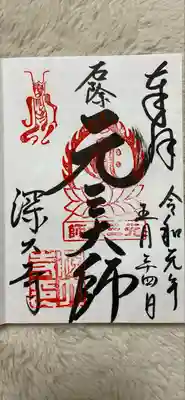 奉拝
令和元年
五月二十四日
厄除
元三大師
深大寺